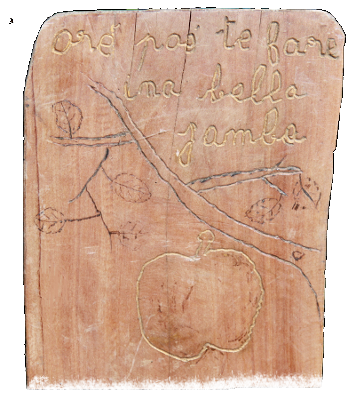 oré pos te fare
ina bella
gamba